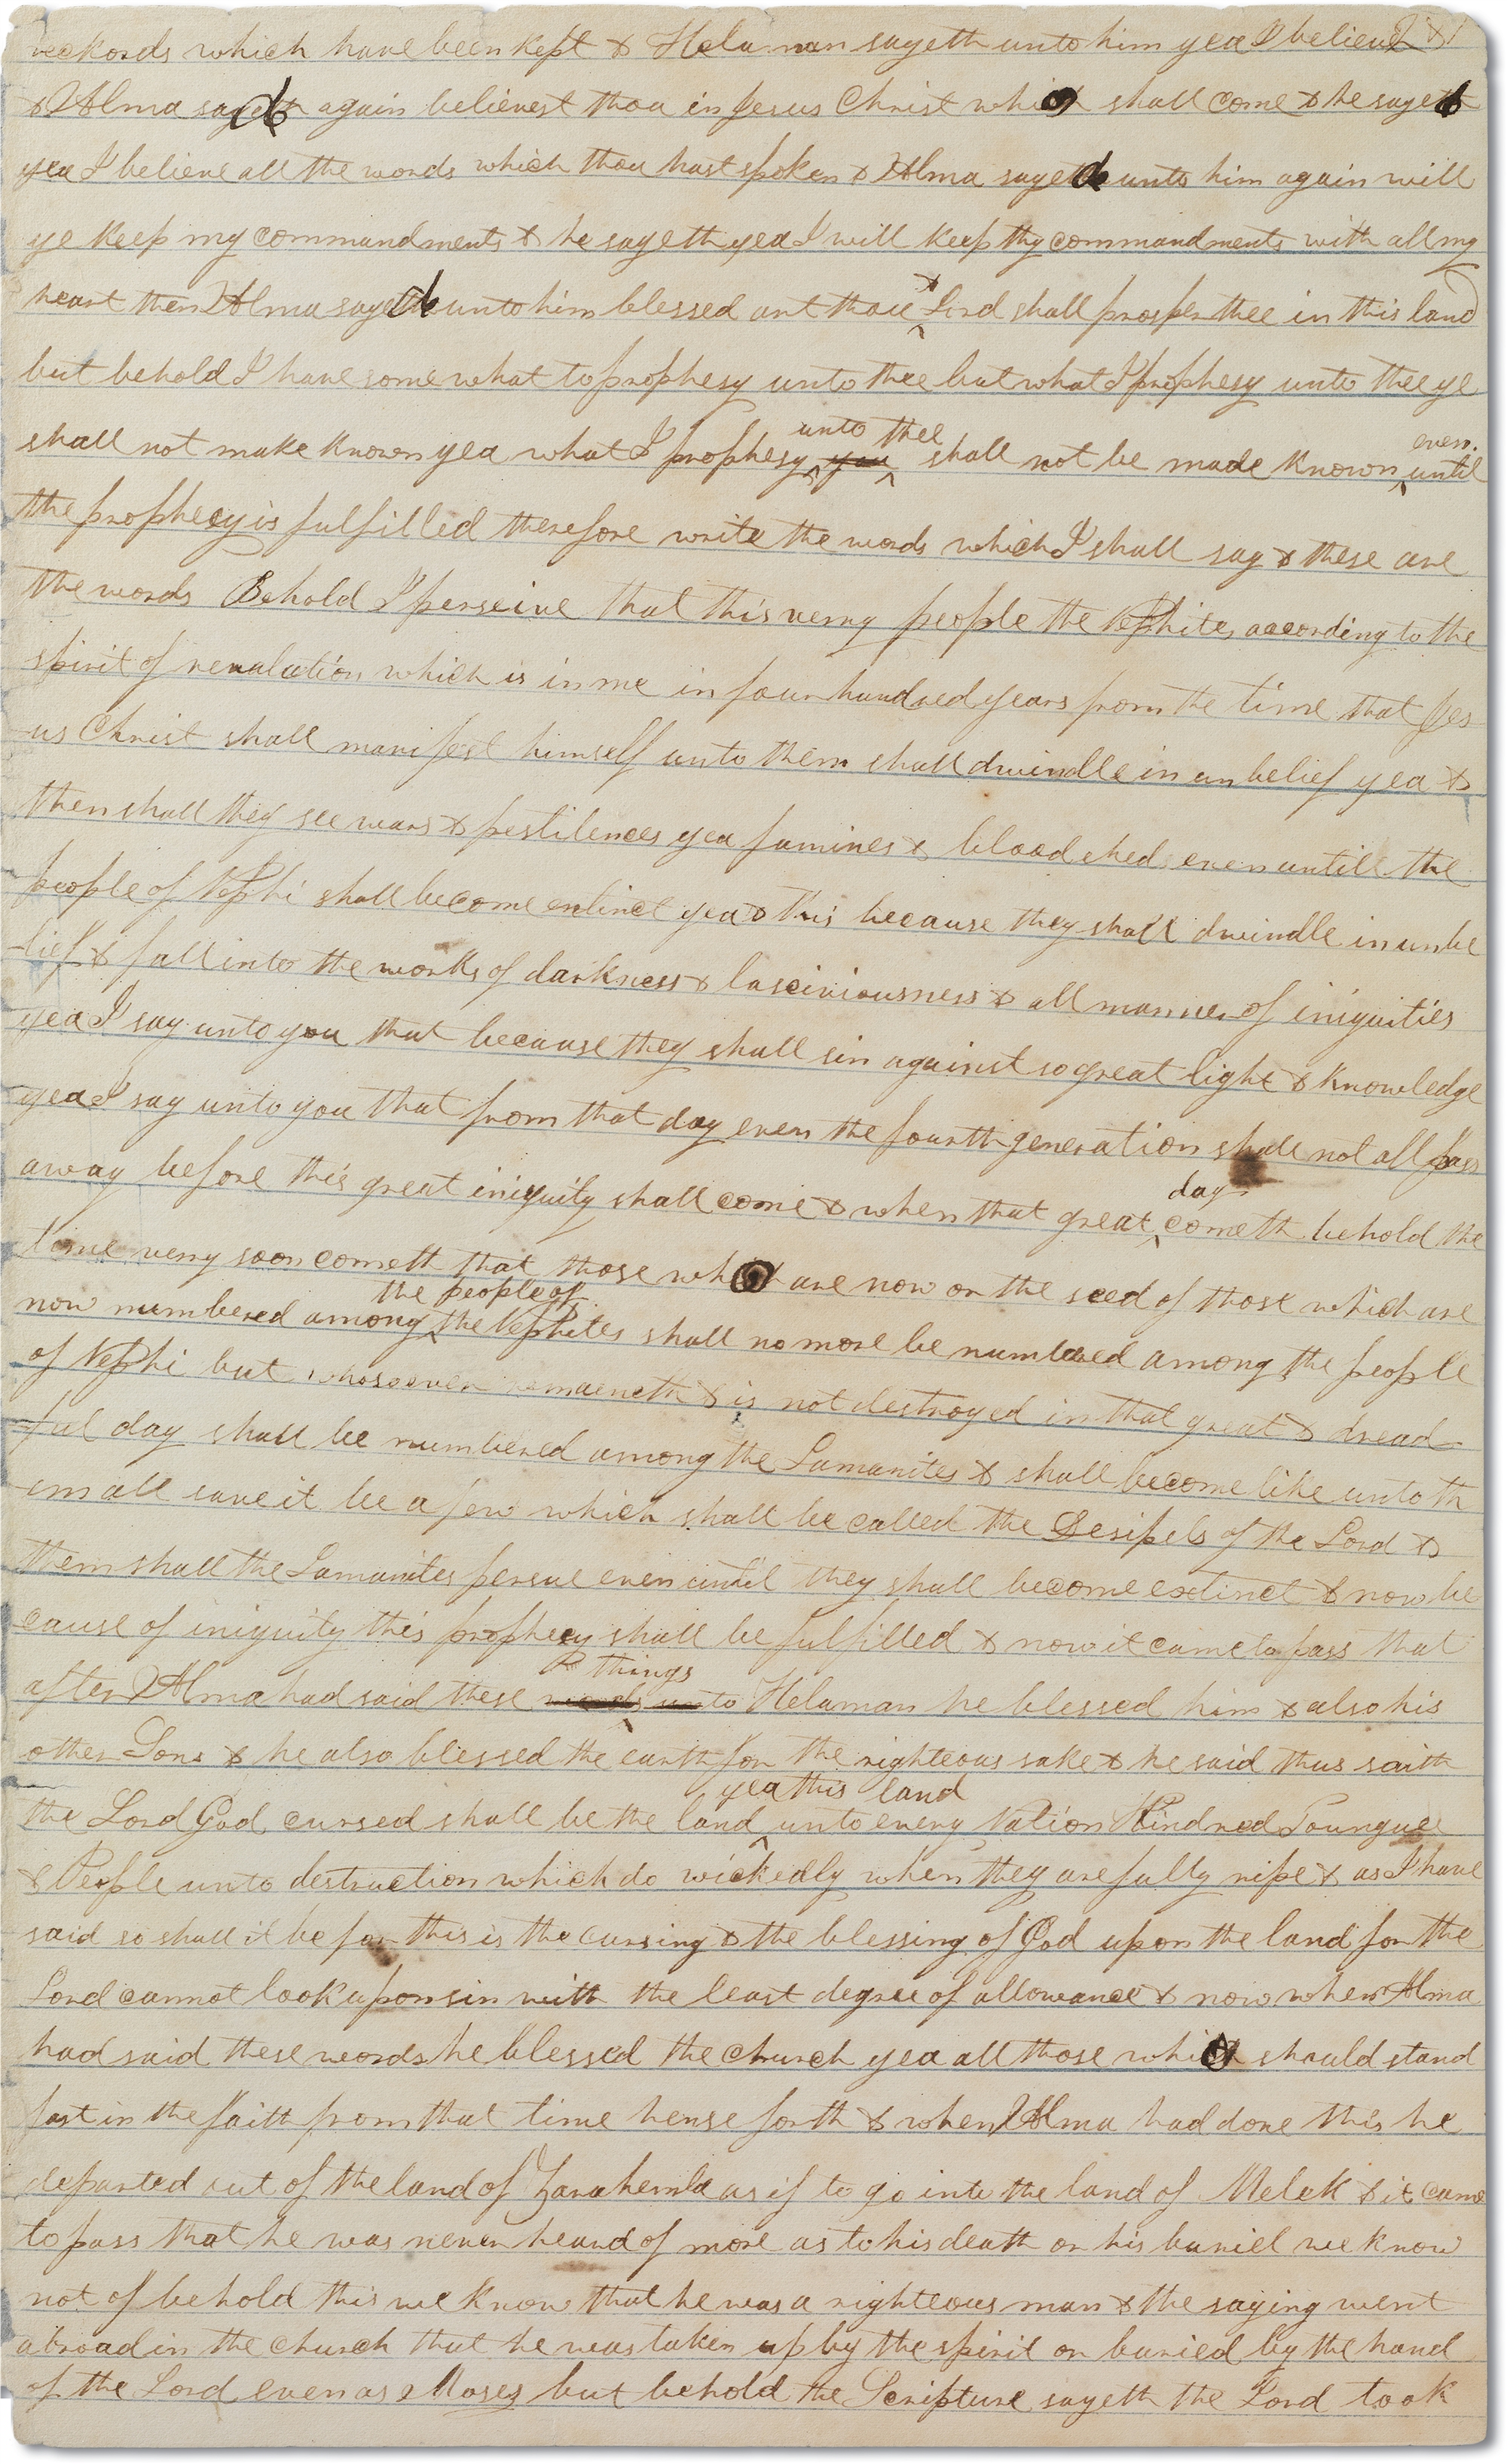 reckords which have been kept & Helaman sayeth unto him yea I believe
& Alma sayeth again believest thou in Jesus Christ who shall come & he sayeth
yea I believe all the words which thou hast spoken & Alma sayeth unto him again will
ye keep my commandments & he sayeth yea I will keep thy commandments with all my
heart then Alma sayeth unto him blessed art thou & Lord shall prosper thee in this land
but behold I have somewhat to prophesy unto thee but what I prophesy unto thee ye
unto thee even
shall not make known yea what I prophesy you shall not be made known until
the prophecy is fulfilled therefore write the words which I shall say & these are
the words Behold I perseive that this verry people the Nephites according to the
spirit of revalation which is in me in four hundred years from the time that Jes
us Christ shall manifest himself unto them shall dwindle in unbelief yea &
then shall they see wars & pestilences yea famines & bloodshed even untill the
people of Nephi shall become extinct yea & this because they shall dwindle in unbe
lief & fall into the works of darkness & lasciviousness & all manner of iniquities
yea I say unto you that because they shall sin against so great light & knowledge
yea I say unto you that from that day even the fourth generation shall not all pass
day
away before this great iniquity shall come & when that great cometh behold the
time verry soon cometh that those who are now or the seed of those which are
the people of
now numbered among the Nephites shall no more be numbered among the people
of Nephi but whosoever remaineth & is not destroyed in that great & dread
ful day shall be numbered among the Lamanites & shall become like unto th
em all save it be a few which shall be called the Desipels of the Lord &
them shall the Lamanites persue even until they shall become extinct & now be
cause of iniquity this prophecy shall be fulfilled & now it came to pass that
things
after Alma had said these words unto Helaman he blessed him & also his
other Sons & he also blessed the earth for the righteous sake & he said thus saith
yea this land
the Lord God cursed shall be the land unto every Nation Kindred Toungue
& People unto destruction which do wickedly when they are fully ripe & as I have
said so shall it be for this is the cursing & the blessing of God upon the land for the
Lord cannot look upon sin with the least degree of allowance & now when Alma
had said these words he blessed the church yea all those who should stand
fast in the faith from that time hense forth & when Alma had done this he
departed out of the land of Zarahemla as if to go into the land of Melek & it came
to pass that he was never heard of more as to his death or his buriel we know
not of behold this we know that he was a righteous man & the saying went
abroad in the church that he was taken up by the spirit or buried by the hand
of the Lord even as Moses but behold the Scripture sayeth the Lord took